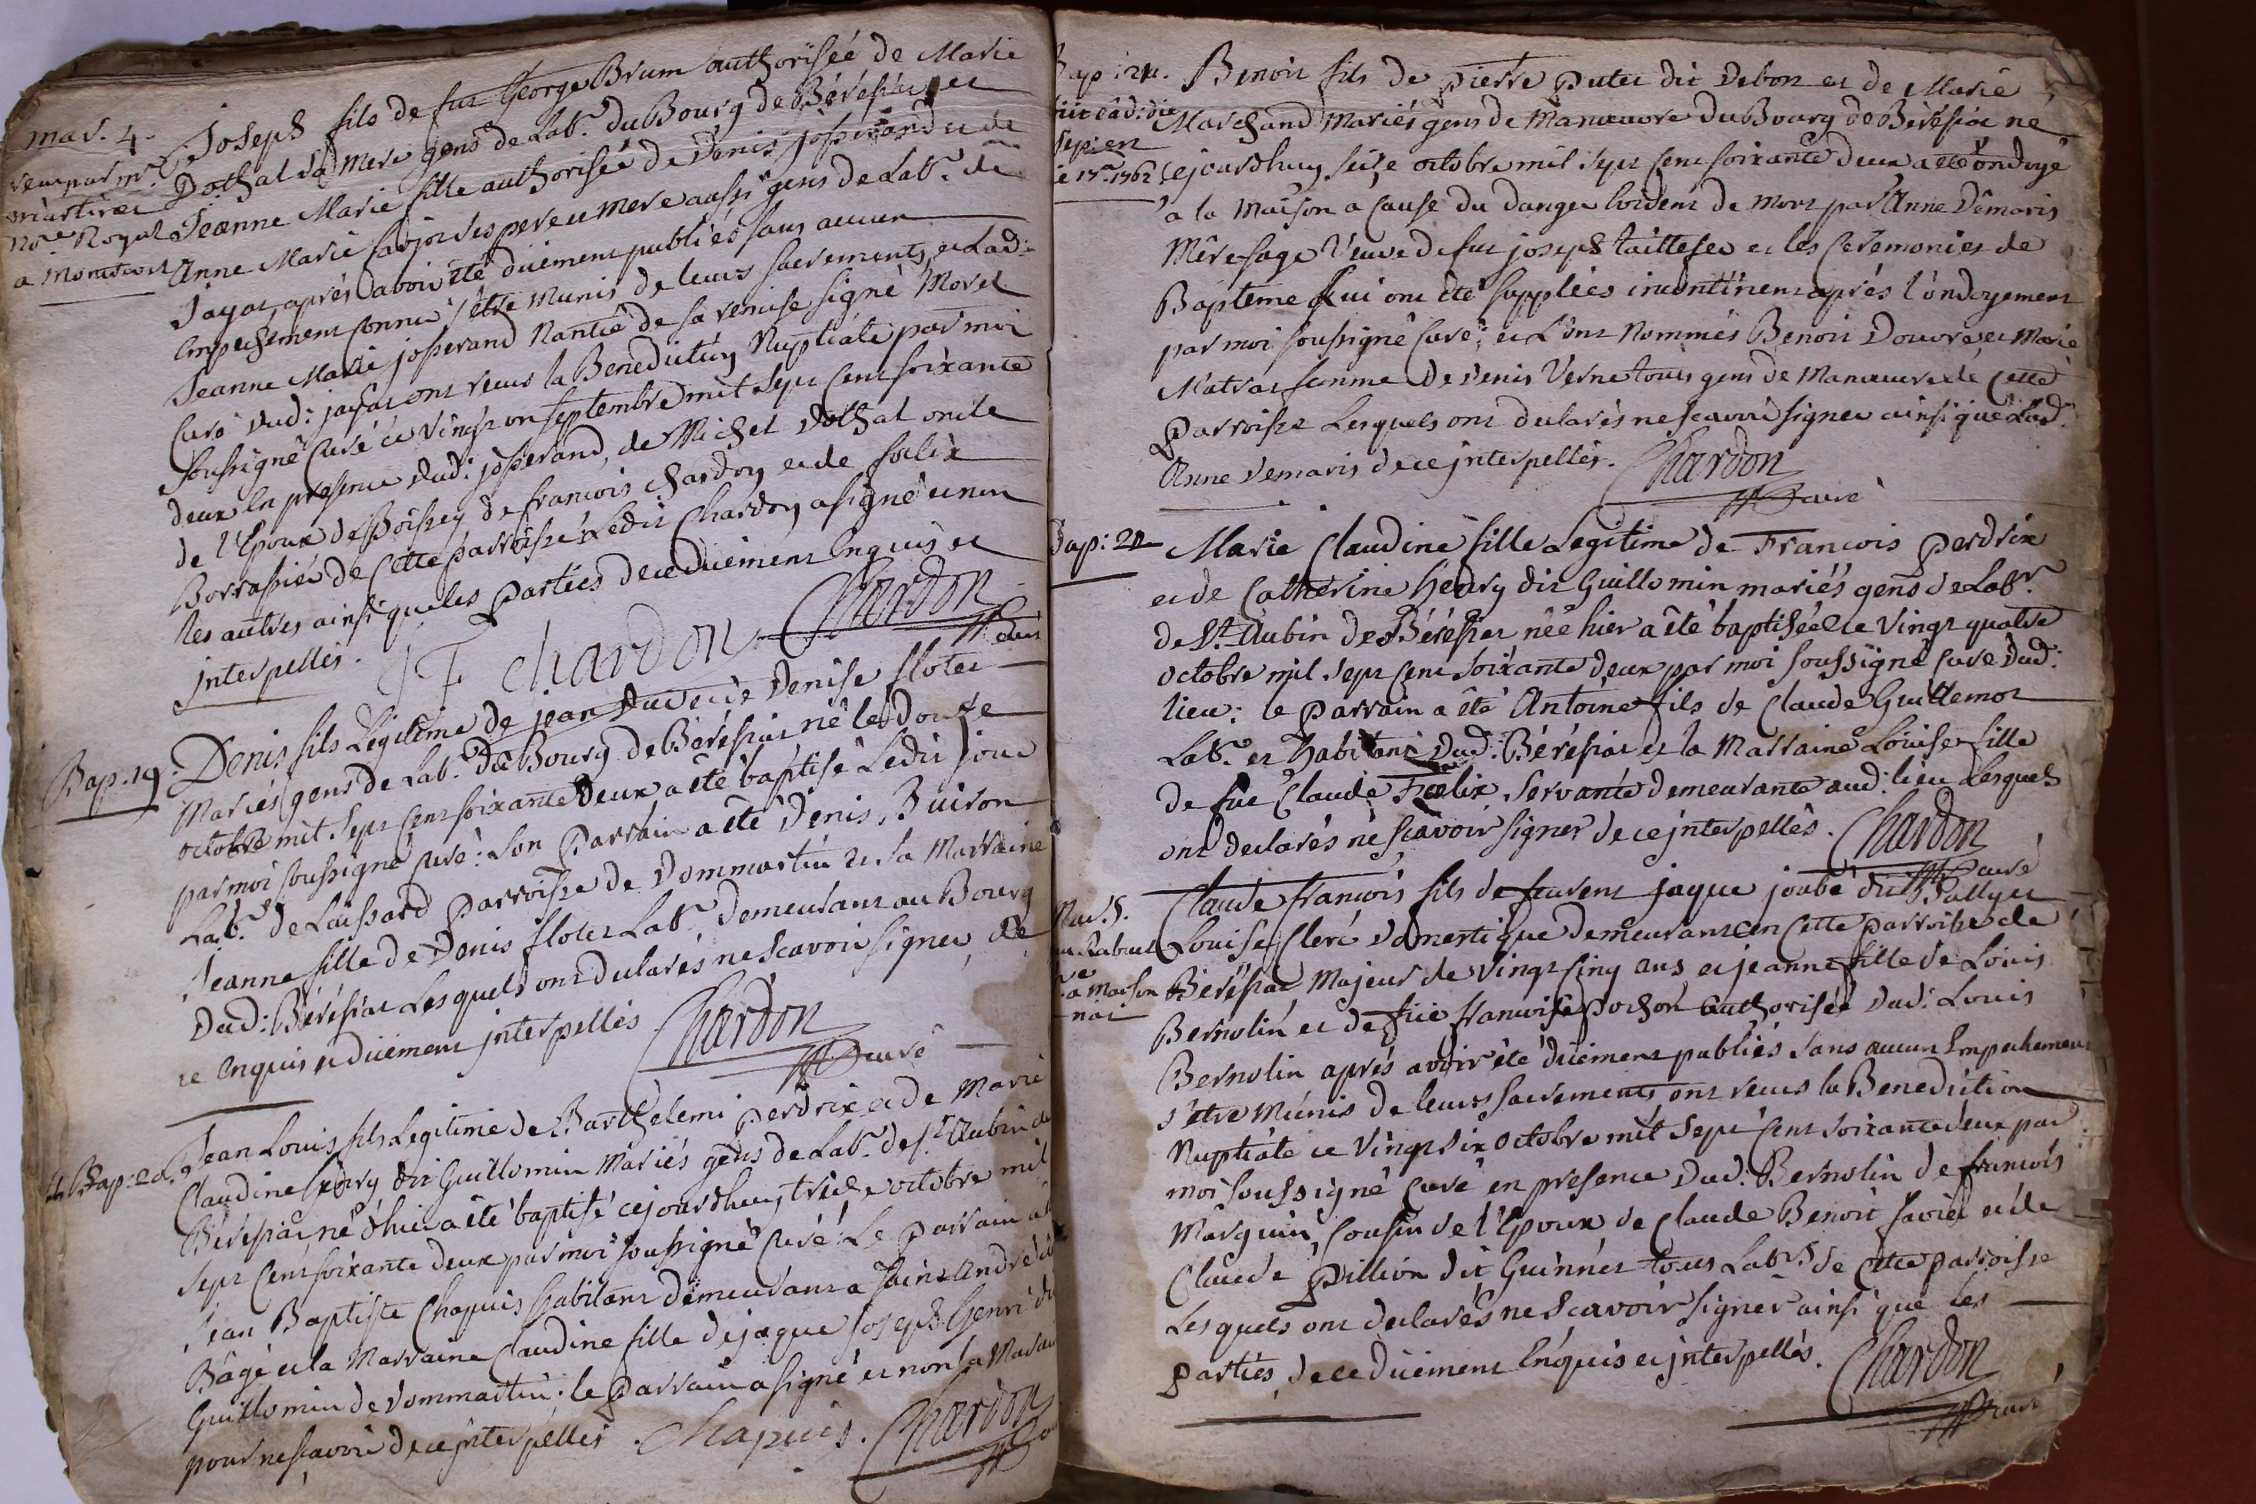 mar. 4.
receu par mr.
martinet
Nore. Royal
a montcoin
Joseph fils de fut George Brum authorisée de Marie
Dothal sa mere gens de Labr. du Bourg de Béréfiat et
Jeanne Marie fille authorisée de Denis josserand et de
Anne Marie ses pere et mere aussi gens de Labr. de
Jayat, aprés avoir été duement publiés sans aucun
Empechement connu s'étre Munis de leurs sacrements, et Lad:
Jeanne Marie josserand Nantie de sa remise signé Morel
Curé dud: jayat ont receus la Benediction Nuptiale par moi
soussigné Curé ce vingt un septembre mil sept cent soixante
deux en presence dud: josserand, de Michel Dothal oncle
de l'Epoux de Boissey de francois chardon et de foelix
Borrassier de Cette parroisse Ledit Chardon a signé et non
les autres ainsi que les parties de ce duement Enquis et
interpellés. JF chardon Chardon
curé
Bap. 19.
Denis fils Légitime de jean Duc et de Denise flotet
Mariés gens de Labr. du Bourg de Béréfiat né le douze
octobre mil sept cent soixante deux a été baptisé Ledit jour
par moi soussigné curé: son Parrain a été Denis Buiron
Labr. de Laissard parroisse de Dommartin et sa Marraine
Jeanne fille de Denis flotet Labr. demeurant au Bourg
dud: Béréfiat Lesquels ont declarés ne scavoir signer, de
ce Enquis et duement interpellés Chardon
curé
Bap: 20.
Jean Louis fils Legitime de Barthelemi perdrix et de Marie
Claudine henry dit Guillomin Mariés gens de Labr. de st. Aubin de
Béréfiat né d'hier a été baptisé cejourdhuy treize octobre mil
sept cent soixante deux par moi soussigné Curé: Le parrain a été
Jean Baptiste Chapuis habitant demeurant a saint andré de
Bâgé et la Marraine Claudine fille de jaque joseph henri dit
Guillomin de Dommartin: le parrain a signé et non sa Marraine
pour ne scavoir de ce interpellés. Chapuis. Chardon
Bap: 21.
sepi en
le 17e 1762
Benoit fils de pierre putet dit Debon et de Marie
Marchand Mariés gens de Manoeuvre du Bourg de Béréfiat né
cejourdhuy seize octobre mil sept cent soixante deux a été ondoyé
a la maison a Cause du danger Evident de mort par Anne Démaris
Mére-sage Veuve de fut joseph taillefer et les Cerémonies de
Baptéme Lui ont été suppléées incontinent aprés l'ondoyement
par moi soussigné Curé; et L'ont Nommés Benoit Douvre, et Marie
Matras femme de Denis Verne tous gens de Manoeuvre de Cette
parroisse Lesquels ont declarés ne scavoir signer ainsi que Lad.
Anne Demaris de ce interpellés. Chardon
curé
Bap: 22
Marie Claudine fille Legitime de Francois perdrix
et de Catherine henry dit Guillomin mariés gens de Labr.
de St. Aubin de Béréfiat née hier a été baptisée Le Vingt quatre
octobre mil sept cent soixante deux par moi soussigné Curé dud:
lieu: le parrain a été Antoine fils de Claude Guillemot
Labr. et habitant dud: Béréfiat et la Marraine Loüise fille
de fut Claude Foelix, servante demeurante aud: lieu Lesquels
ont declarés ne scavoir signer de ce interpellés. Chardon
curé
Mar. 5.
Claude francois fils de jaque joubé dit Ballyet
Louise Clerc Domestique demeurant en Cette parroisse de
Béréfiat Majeur de Vingt Cinq ans et jeanne fille de Loüis
Bernolin et de fue francoise pochon authorisée dud: Louis
Bernolin aprés avoir été duement publiés sans aucun Empechement
s'étre Munis de leurs sacrements ont receus la Benediction
Nuptiale ce Vingt six octobre mil sept Cent soixante deux par
moi soussigné Curé en presence dud: Bernolin de francois
Marguin, Cousin de l'Epoux de Claude Benoit favier et de
Claude pillion dit Guinnet tous Labrs. de Cette parroisse
Lesquels ont declarés ne scavoir signer ainsi que les
parties, de ce duement Enquis et interpellés. Chardon
curé